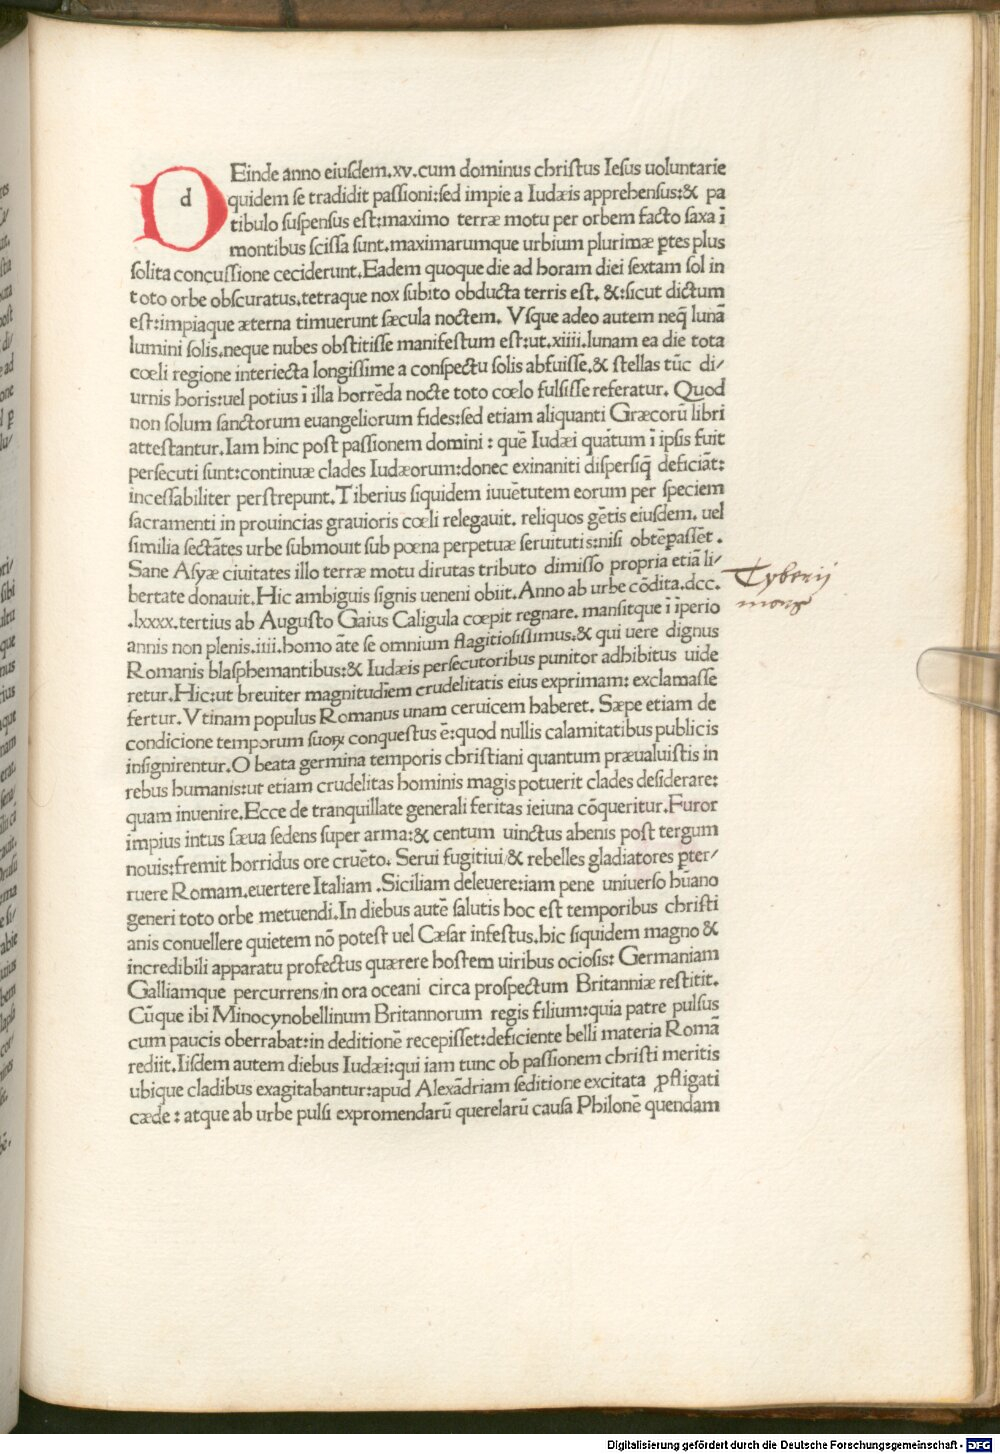 DEinde anno eiusdem.xv.cum dominus christus Iesus uoluntarie
d
quidem se tradidit passioni:sed impie a Iudæis apprehensus:& pa
tibulo suspensus est:maximo terræ motu per orbem facto saxa ī
montibus scissa sunt.maximarumque urbium plurimæ ꝑtes plus
solita concussione ceciderunt.Eadem quoque die ad horam diei sextam sol in
toto orbe obscuratus.tetraque nox subito obducta terris est. &:sicut dictum
est:impiaque æterna timuerunt sæcula noctem. Vsque adeo autem neq̄ lunā
lumini solis.neque nubes obstitisse manifestum est:ut.xiiii.lunam ea die tota
cœli regione interiecta longissime a conspectu solis abfuisse.& stellas tūc di/
urnis horis:uel potius ī illa horrēda nocte toto cœlo fulsisse referatur. Quod
non solum sanctorum euangeliorum fides:sed etiam aliquanti Græcorū libri
attestantur.Iam hinc post passionem domini : quē Iudæi quātum ī ipsis fuit
persecuti sunt:continuæ clades Iudæorum:donec exinaniti dispersiq̄ deficiāt:
incessabiliter perstrepunt.Tiberius siquidem iuuētutem eorum per speciem
sacramenti in prouincias grauioris cœli relegauit. reliquos gētis eiusdem. uel
similia sectātes urbe submouit sub pœna perpetuæ seruitutis:nisi obtēpassēt.
Sane Asyæ ciuitates illo terræ motu dirutas tributo dimisso propria etiā li/
bertate donauit.Hic ambiguis signis ueneni obiit.Anno ab urbe cōdita.dcc.
.lxxxx.tertius ab Augusto Gaius Caligula cœpit regnare. mansitque ī īperio
annis non plenis.iiii.homo āte se omnium flagitiosissimus.& qui uere dignus
Romanis blasphemantibus:& Iudæis persecutoribus punitor adhibitus uide
retur.Hic:ut breuiter magnitudīem crudelitatis eius exprimam: exclamasse
fertur.Vtinam populus Romanus unam ceruicem haberet. Sæpe etiam de
condicione temporum suoꝝ conquestus ē:quod nullis calamitatibus publicis
insignirentur.O beata germina temporis christiani quantum præualuistis in
rebus humanis:ut etiam crudelitas hominis magis potuerit clades desiderare:
quam inuenire.Ecce de tranquillate generali feritas ieiuna cōqueritur.Furor
impius intus sæua sedens super arma:& centum uinctus ahenis post tergum
nouis:fremit horridus ore cruēto. Serui fugitiui/& rebelles gladiatores ꝑter/
ruere Romam.euertere Italiam .Siciliam deleuere:iam pene uniuerso hūano
generi toto orbe metuendi.In diebus autē salutis hoc est temporibus christi
anis conuellere quietem nō potest uel Cæsar infestus.hic siquidem magno &
incredibili apparatu profectus quærere hostem uiribus ociosis: Germaniam
Galliamque percurrens/in ora oceani circa prospectum Britanniæ restitit.
Cūque ibi Minocynobellinum Britannorum regis filium:quia patre pulsus
cum paucis oberrabat:in deditionē recepisset:deficiente belli materia Romā
rediit.Iisdem autem diebus Iudæi:qui iam tunc ob passionem christi meritis
ubique cladibus exagitabantur:apud Alexādriam seditione excitata ꝓfligati
cæde : atque ab urbe pulsi expromendarū querelarū causa Philonē quendam
Tyberij
mors
Digitalisierung gefördert durch die Deutsche Forschungsgemeinschaft - DFG